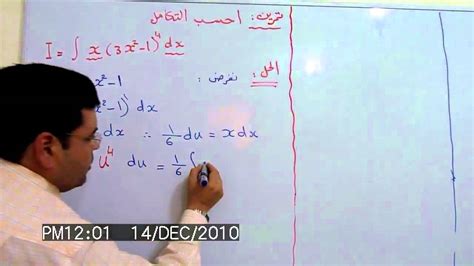 تمرين: احسب التكامل
I = ∫ x (3x²-1)⁴ dx
الحل: نفرض: x²-1
)' dx
dx ∴ 1/6 du = x dx
u⁴ du = 1/6 ∫
PM12:01 14/DEC/2010